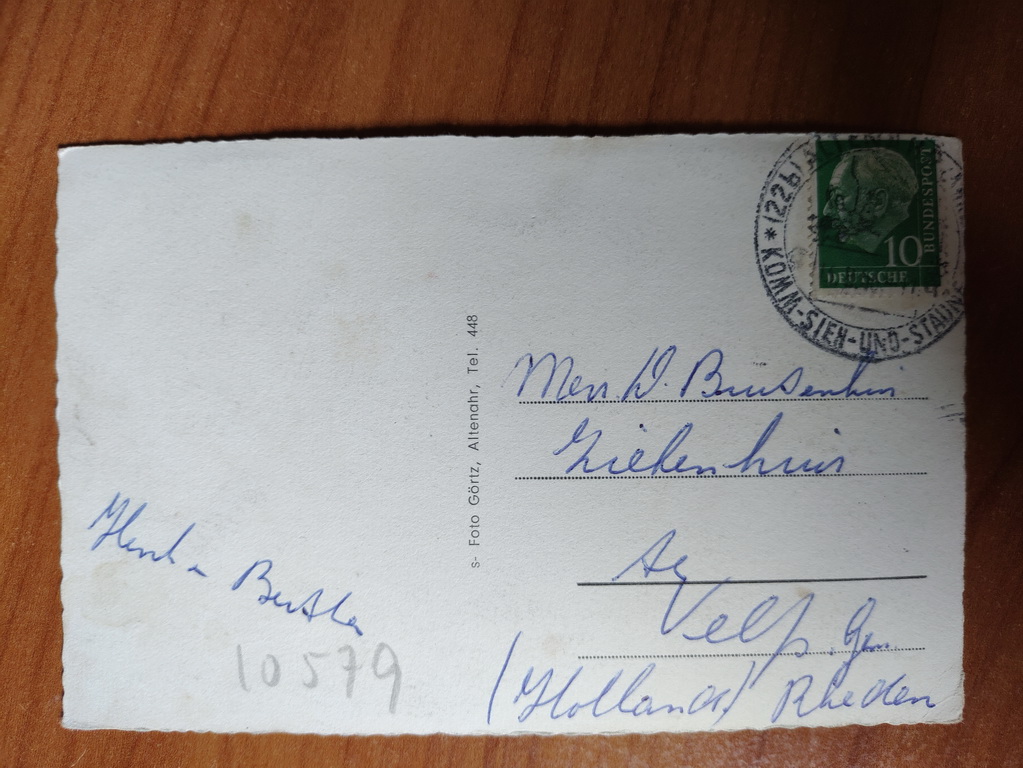 (22b)
* KOMM-SIEH-UND-STAUN
BUNDESPOST
10
DEUTSCHE
s- Foto Görtz, Altenahr, Tel. 448
Ziekenhuis
Velp. Gem.
(Holland) Rheden
Henk Bertha
10579